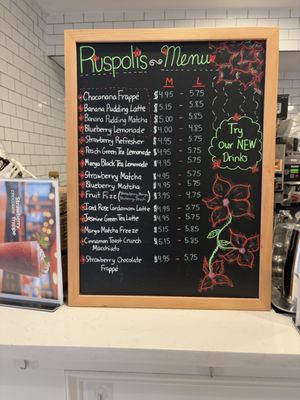 Ruspoli's Menu
M L
Choconana Frappé $4.95 - 5.75
Banana Pudding Latte $5.15 - 5.85
Banana Pudding Matcha $5.00 - 5.85
Blueberry Lemonade $4.00 - 4.85
Strawberry Refresher $4.95 - 5.75
Peach Green Tea Lemonade $4.95 - 5.75
Mango Black Tea Lemonade $4.95 - 5.75
Strawberry Matcha $4.95 - 5.75
Blueberry Matcha $4.95 - 5.75
Fruit Fizz $3.95 - 4.75
Iced Rose Cardamom Latte $4.95 - 5.75
Jasmine Green Tea Latte $4.95 - 5.75
Mango Matcha Freeze $5.15 - 5.85
Cinnamon Toast Crunch
Macchiato $5.15 - 5.85
Strawberry Chocolate
Frappé $4.95 - 5.75
Try
Our NEW
Drinks
Strawberry